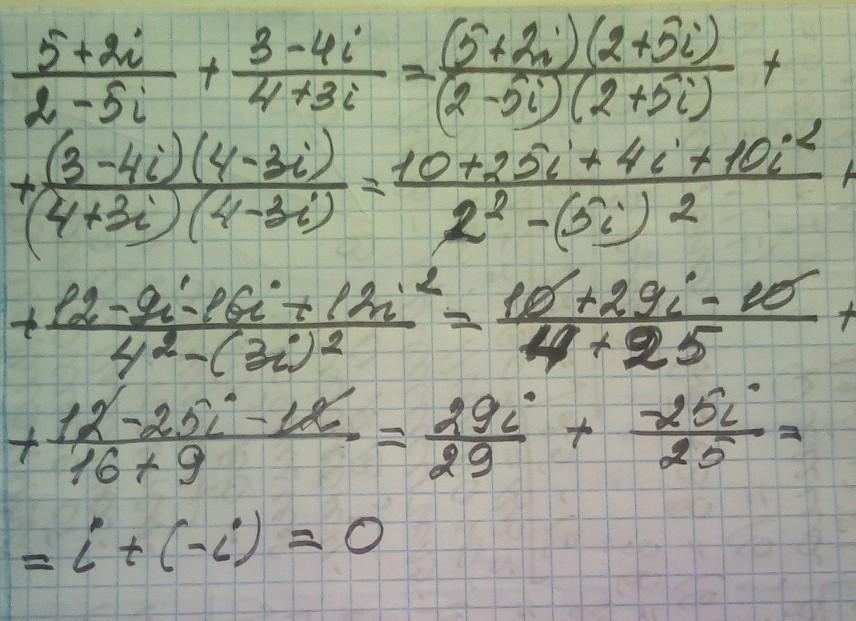 (5+2i)/(2-5i) + (3-4i)/(4+3i) = ((5+2i)(2+5i))/((2-5i)(2+5i)) +
+ ((3-4i)(4-3i))/((4+3i)(4-3i)) = (10+25i+4i+10i²)/(2²-(5i)²) +
+ (12-9i-16i+12i²)/(4²-(3i)²) = (10+29i-10)/(4+25) +
+ (12-25i-12)/(16+9) = 29i/29 + -25i/25 =
= i + (-i) = 0